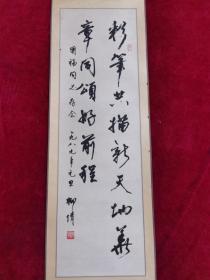 彩笔共描新天地华
章同颂好前程
国福同志存念 一九八九年元旦 柳倩